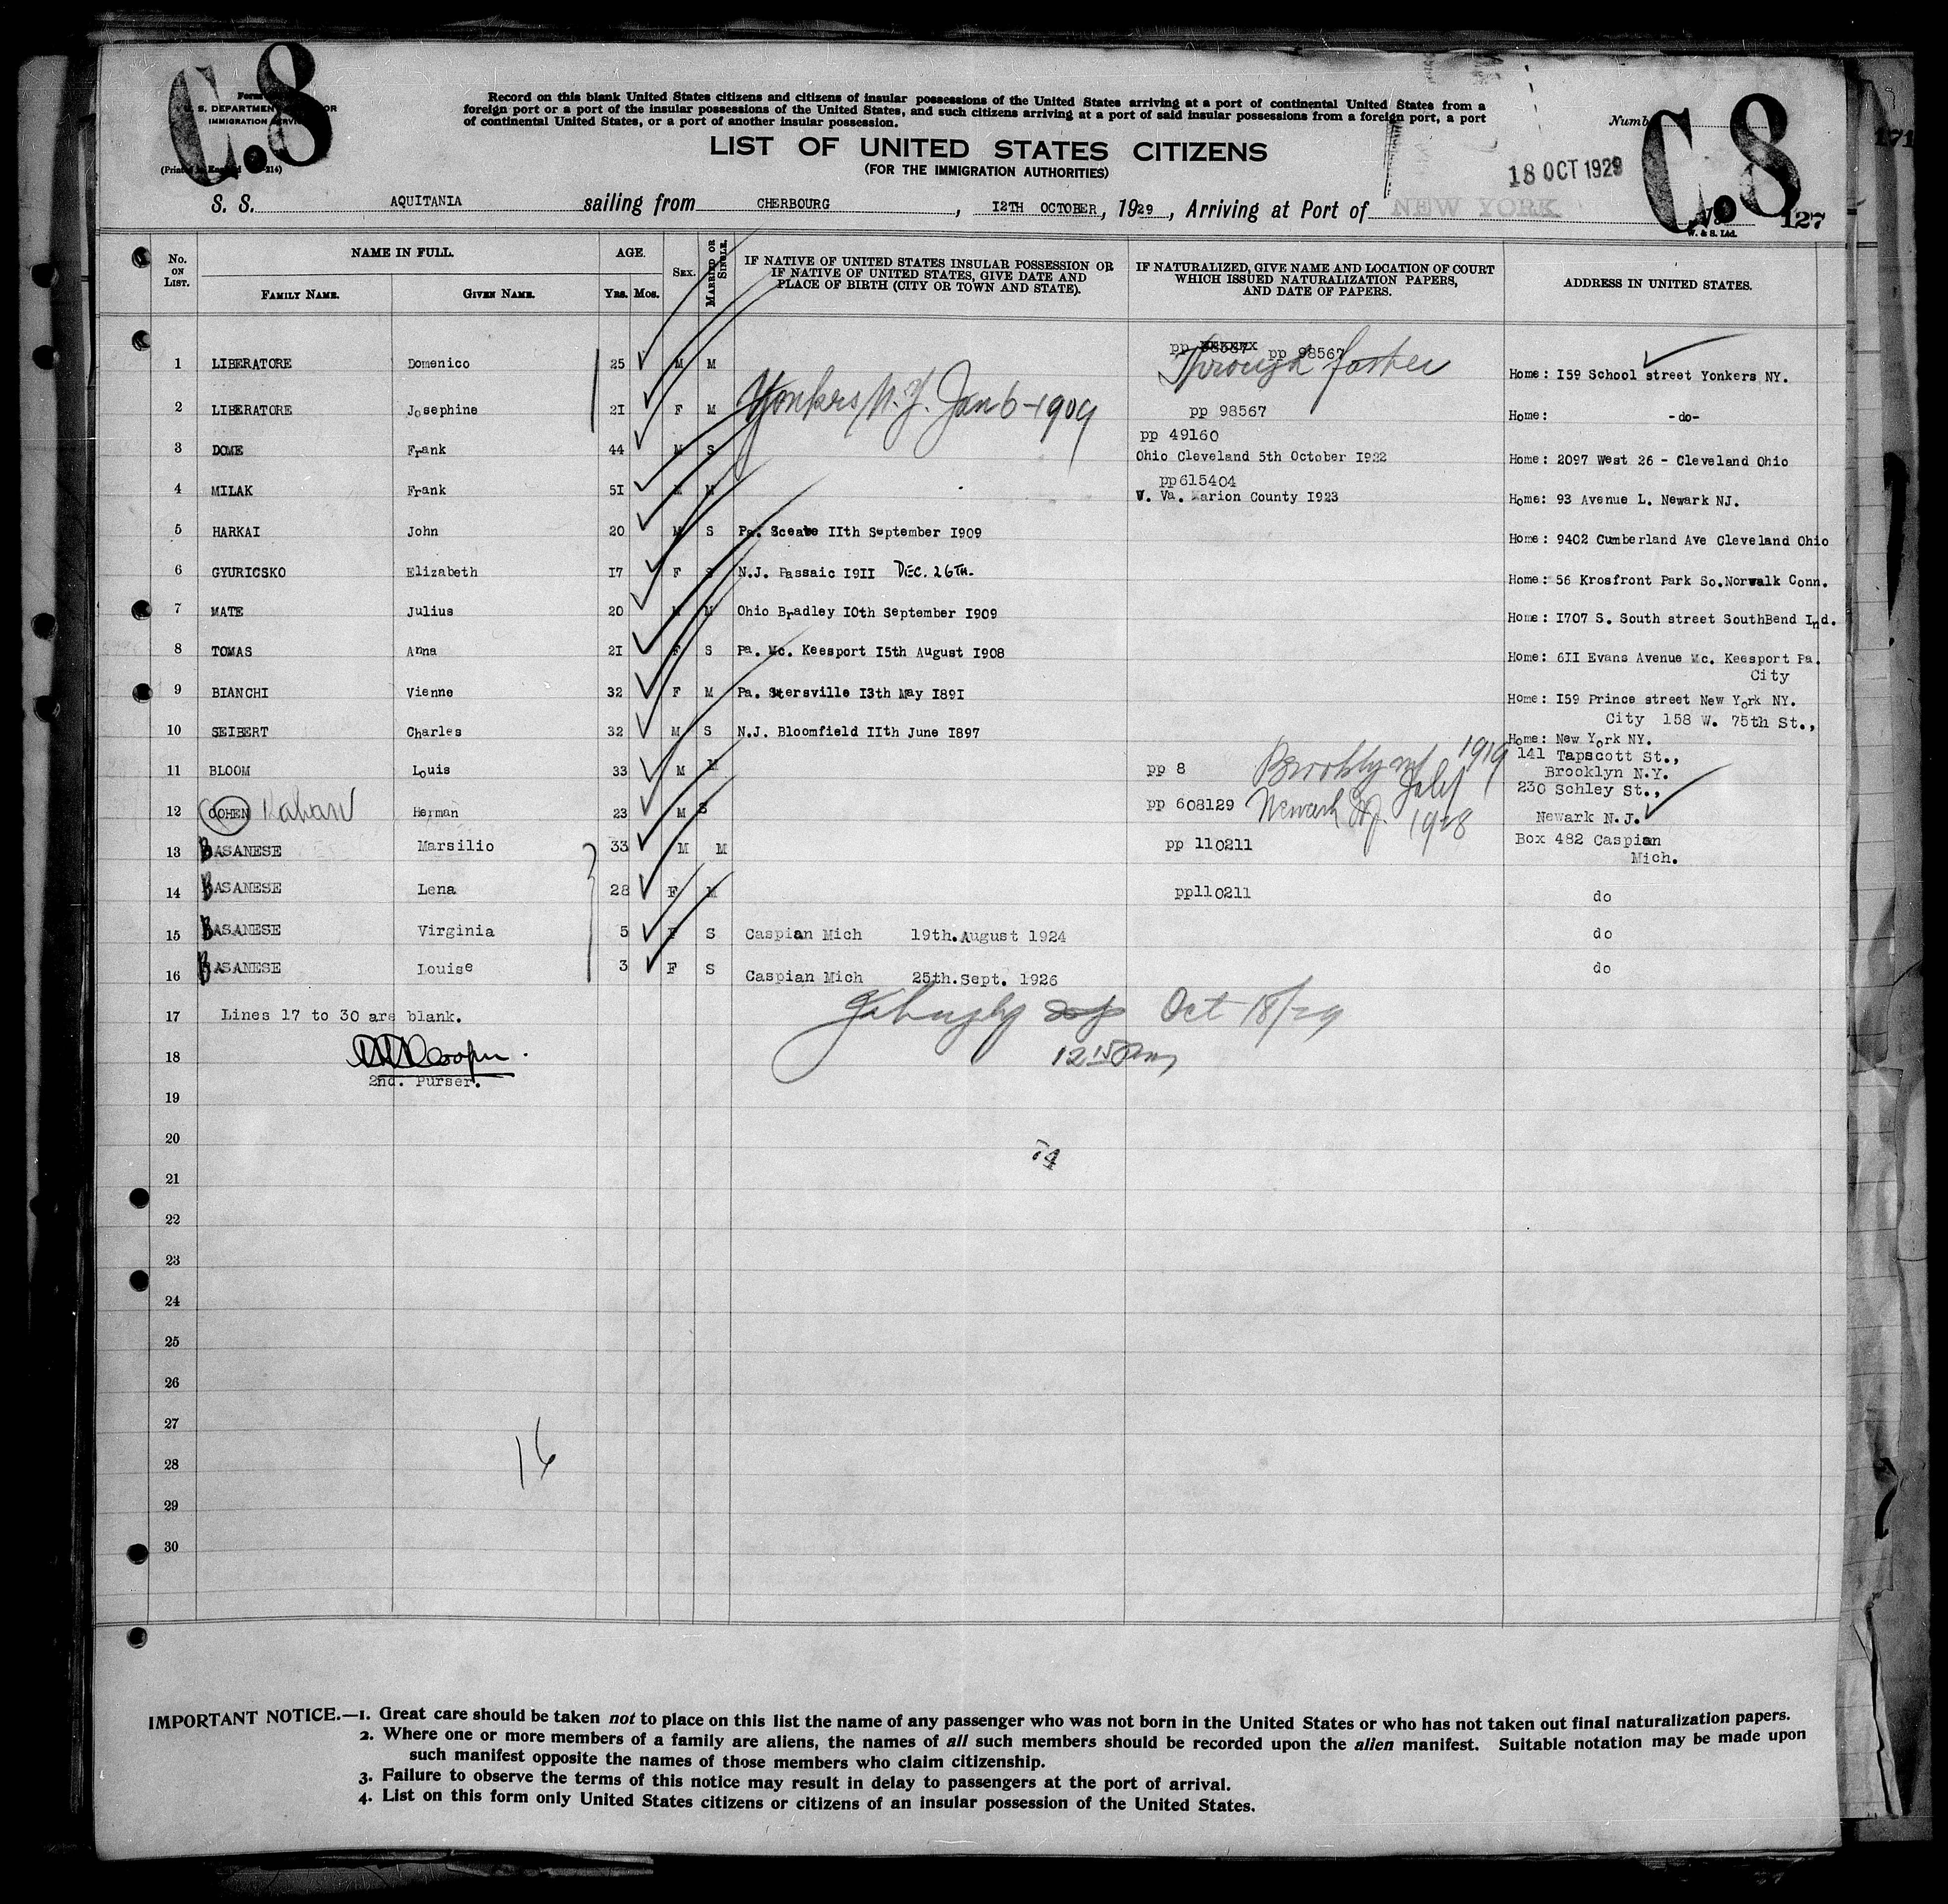 C.8
Form
U. S. DEPARTMENT OF LABOR
IMMIGRATION SERVICE
(Printed in England 314)
Record on this blank United States citizens and citizens of insular possessions of the United States arriving at a port of continental United States from a
foreign port or a port of the insular possessions of the United States, and such citizens arriving at a port of said insular possessions from a foreign port, a port
of continental United States, or a port of another insular possession.
LIST OF UNITED STATES CITIZENS
(FOR THE IMMIGRATION AUTHORITIES)
Numb
C.8
171
18 OCT 1929
S. S. AQUITANIA sailing from CHERBOURG, I2TH OCTOBER, 1929, Arriving at Port of NEW YORK
127
W. & S. Ltd.
No. ON LIST. NAME IN FULL. FAMILY NAME. GIVEN NAME. AGE. YRS. MOS. SEX. MARRIED OR SINGLE. IF NATIVE OF UNITED STATES INSULAR POSSESSION OR IF NATIVE OF UNITED STATES, GIVE DATE AND PLACE OF BIRTH (CITY OR TOWN AND STATE). IF NATURALIZED, GIVE NAME AND LOCATION OF COURT WHICH ISSUED NATURALIZATION PAPERS, AND DATE OF PAPERS. ADDRESS IN UNITED STATES.
pp 98567
1 LIBERATORE Domenico 25 M M Through father Home: I59 School street Yonkers NY.
2 LIBERATORE Josephine 2I F M Yonkers N.Y. Jan 6-1909 pp 98567 Home: -do-
pp 49160
3 DOME Frank 44 M S Ohio Cleveland 5th October I922 Home: 2097 West 26 - Cleveland Ohio
pp615404
4 MILAK Frank 5I M M W. Va. Marion County I923 Home: 93 Avenue L. Newark NJ.
5 HARKAI John 20 M S Pa. IIth September I909 Home: 9402 Cumberland Ave Cleveland Ohio
6 GYURICSKO Elizabeth I7 F S N.J. Passaic I9II DEC. 26TH. Home: 56 Krosfront Park So.Norwalk Conn.
7 MATE Julius 20 M M Ohio Bradley I0th September I909 Home: I707 S. South street SouthBend Ind.
8 TOMAS Anna 2I F S Pa. Mc. Keesport I5th August I908 Home: 6II Evans Avenue Mc. Keesport Pa.
City
9 BIANCHI Vienne 32 F M Pa. I3th May I89I Home: I59 Prince street New York NY.
City 158 W. 75th St.,
10 SEIBERT Charles 32 M S N.J. Bloomfield IIth June I897 Home: New York NY.
141 Tapscott St.,
11 BLOOM Louis 33 M M pp 8 Brooklyn 1919 Brooklyn N.Y.
230 Schley St.,
12 COHEN Kahan Herman 23 M S pp 608129 Newark NJ. 1928 Newark N.J.
13 BASANESE Marsilio 33 M M pp 110211 Box 482 Caspian
Mich.
14 BASANESE Lena 28 F M pp110211 do
15 BASANESE Virginia 5 F S Caspian Mich 19th.August 1924 do
16 BASANESE Louise 3 F S Caspian Mich 25th.Sept. 1926 do
17 Lines 17 to 30 are blank. Oct 18/29
18 Cooper. 12 15 Pm
2nd. Purser.
19
20
21
22
23
24
25
26
27
16
28
29
30
IMPORTANT NOTICE.—1. Great care should be taken not to place on this list the name of any passenger who was not born in the United States or who has not taken out final naturalization papers.
2. Where one or more members of a family are aliens, the names of all such members should be recorded upon the alien manifest. Suitable notation may be made upon
such manifest opposite the names of those members who claim citizenship.
3. Failure to observe the terms of this notice may result in delay to passengers at the port of arrival.
4. List on this form only United States citizens or citizens of an insular possession of the United States.